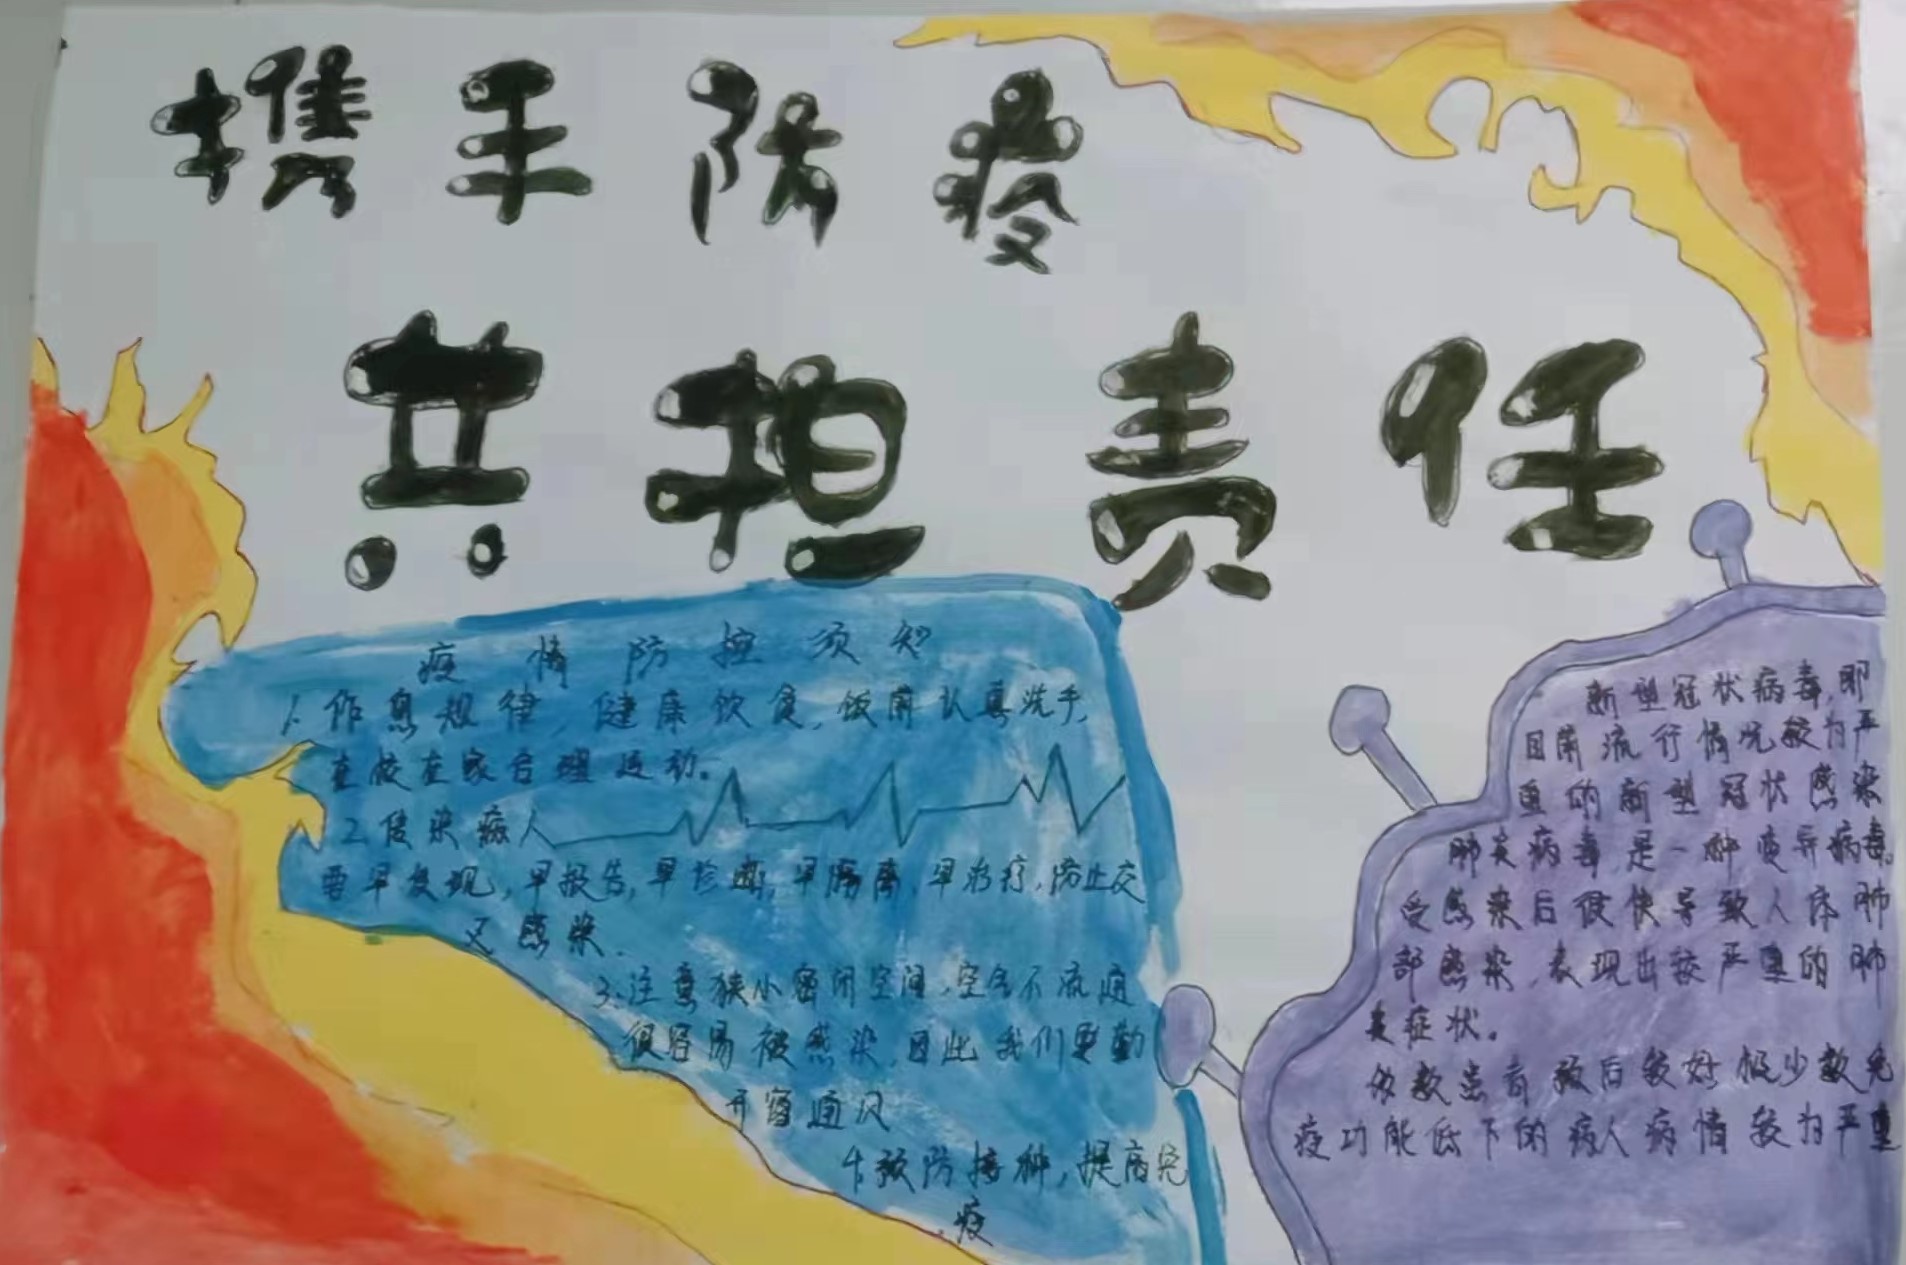 携手防疫
共担责任
疫情防控须知
1.作息规律,健康饮食,饭前认真洗手,
在校在家合理运动。
2.传染病人
要早发现,早报告,早诊断,早隔离,早治疗,防止交
叉感染.
3.注意狭小密闭空间,空气不流通
很容易被感染,因此我们要勤
开窗通风
4.预防接种,提高免
疫
新型冠状病毒,即
目前流行情况较为严
重的新型冠状感染
肺炎病毒,是一种变异病毒。
受感染后很快导致人体肺
部感染,表现出较严重的肺
炎症状。
多数患者预后较好极少数免
疫功能低下的病人病情较为严重